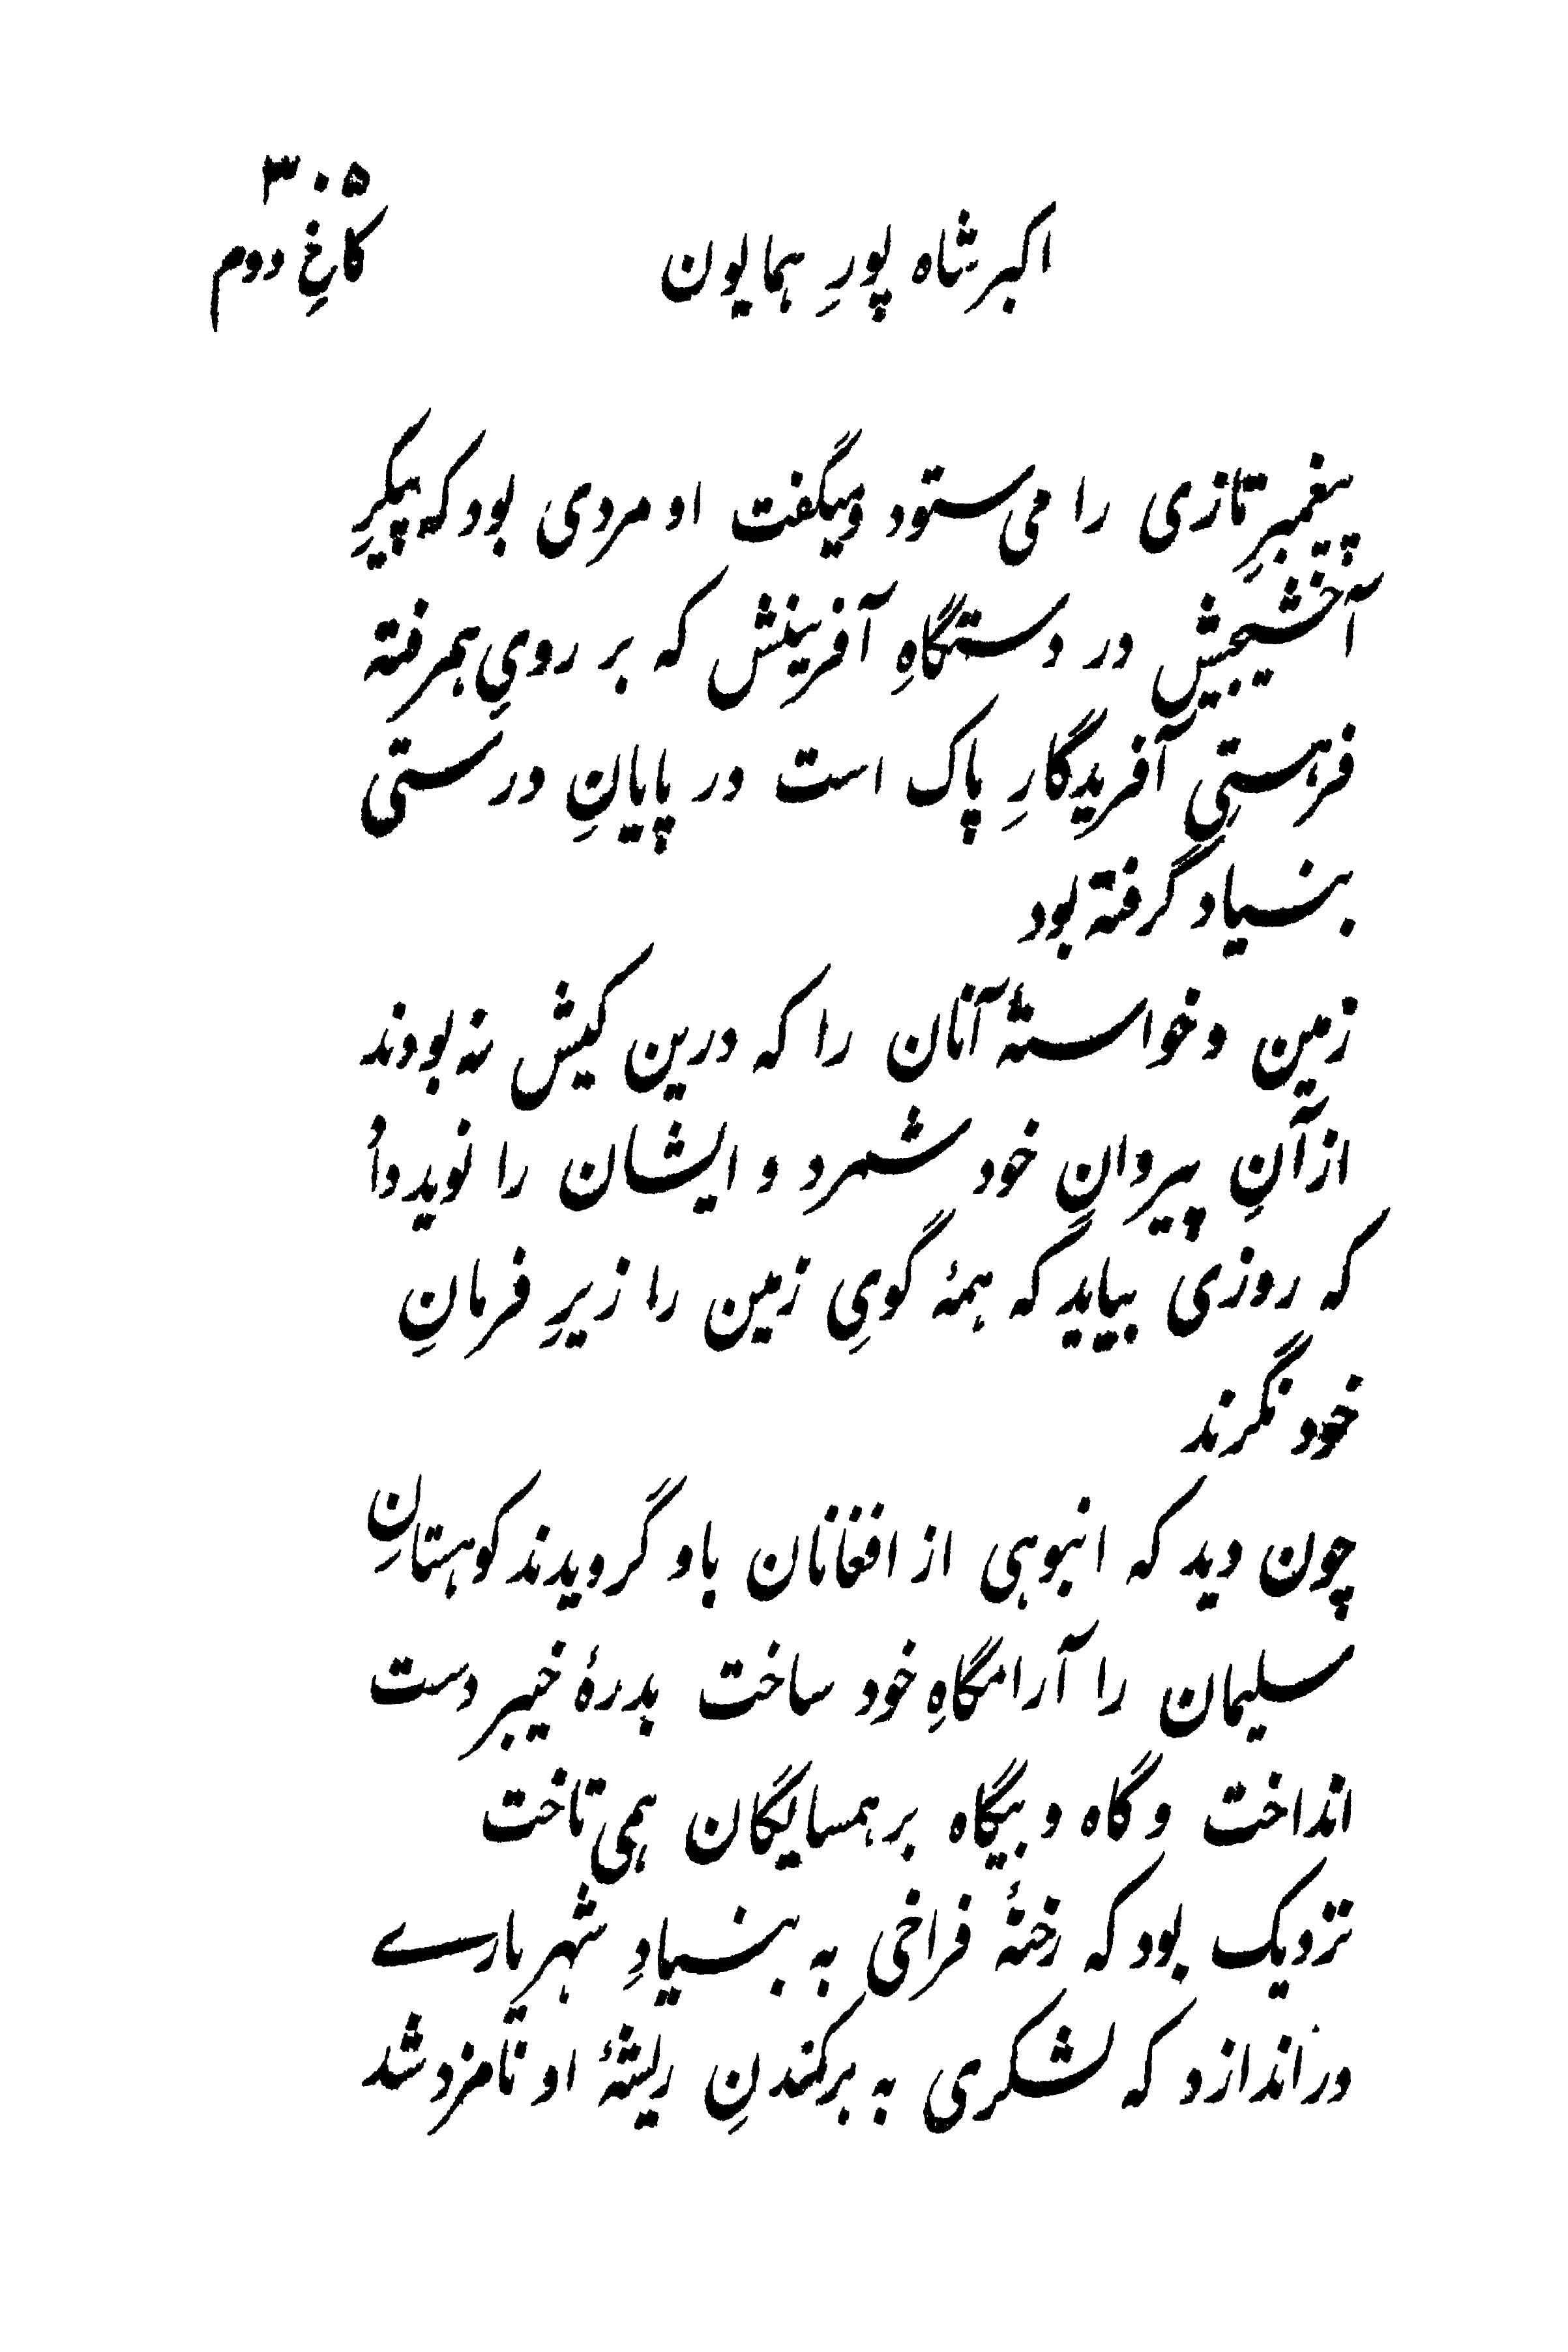 ۳۰۵
اکبر شاه پورِ همایون
کاخِ دوم
پیغمبرِ تازی را می‌ستود و میگفت او مردی بود که پیکرِ
آخشیجیش در دستگاهِ آفرینش که بر رویِ همرفته
فرهستیِ آفریدگارِ پاک است در پایانِ درستی
بنیاد گرفته بود
زمین و خواستهٔ آنان را که درین کیش نه بودند
از آنِ پیروانِ خود شمرد و ایشان را نوید داُ
که روزی بیاید که همهٔ گویِ زمین را زیرِ فرمانِ
خود نگرند
چون دید که انبوهی از افغانان باو گرویدند کوهستانِ
سلیمان را آرامگاهِ خود ساخت بدرهٔ خیبر دست
انداخت و گاه و بیگاه بر همسایگان همی تاخت
نزدیک بود که رخنهٔ فراخی به بنیادِ شهریارے
در اندازد که لشکری به برکندنِ ریشهٔ او نامزد شد